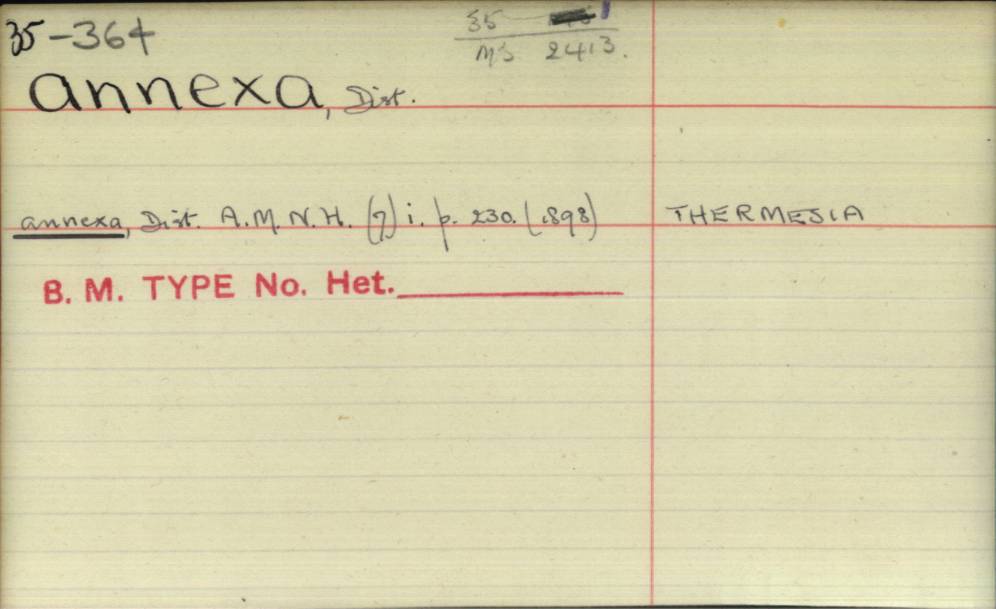 35-364
35
MS 2413.
annexa, Dist.
annexa, Dist. A.M.N.H. (7) i. p. 230. (1898) THERMESIA
B. M. TYPE No. Het.